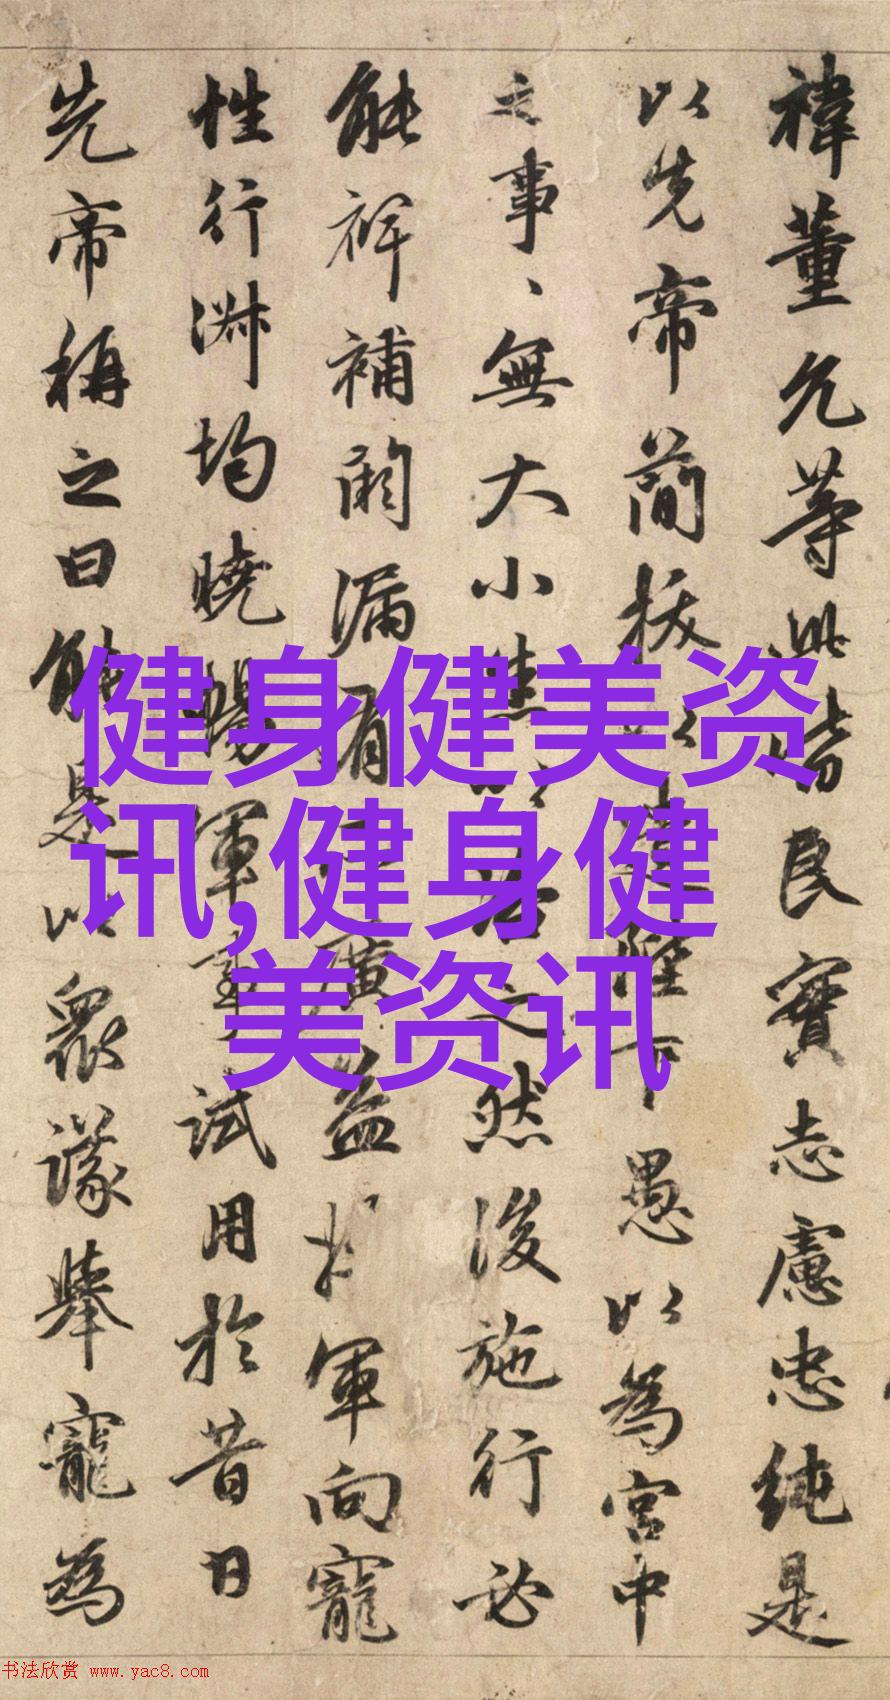 禕董允等此皆良實志慮忠純是
以先帝簡拔以遺陛下愚以為宮中
之事、無大小悉以咨之然後施行必
能裨補闕漏有廣益將軍向寵
性行淑均曉暢軍事試用於昔日
先帝稱之曰能是以衆議舉寵為
健身健美资
讯,健身健
美资讯
书法欣赏 www.yac8.com